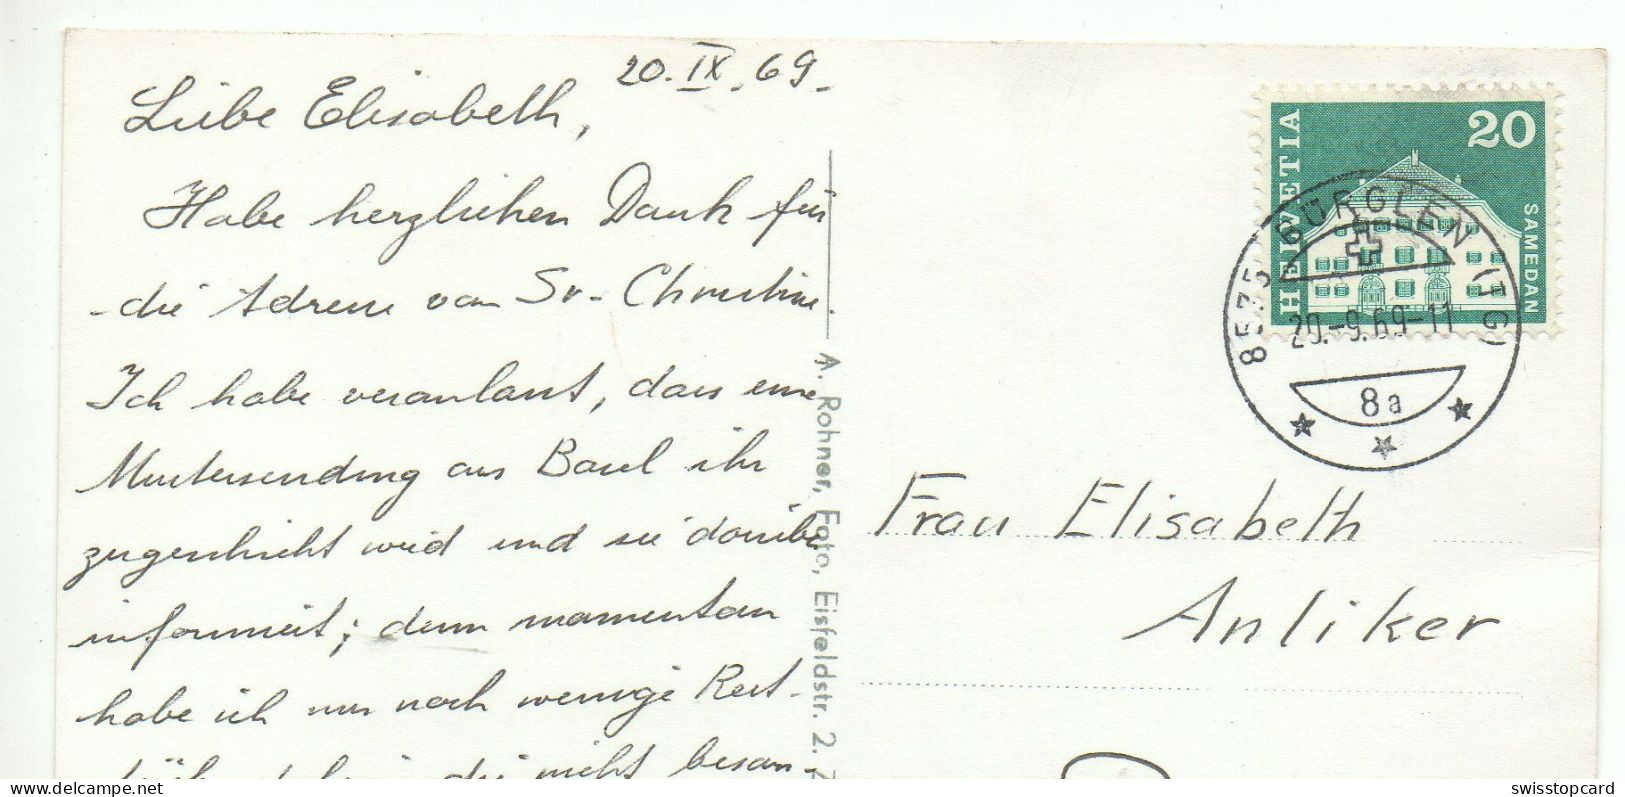 20. IX. 69.
Liebe Elisabeth,
Habe herzlichen Dank für
die Adresse von Sr. Christine.
Ich habe veranlasst, dass eine
Mustersendung aus Basel ihr
zugeschickt wird und sie darüber
informiert; denn momentan
habe ich nur noch wenige Rest-
die nicht besan-
A. Rohner, Foto, Eisfeldstr. 2. Z
HELVETIA
20
SAMEDAN
8575 BÜRGLEN (TG)
20.-9.69-11
8a
Frau Elisabeth
Anliker
delcampe.net
swisstopcard